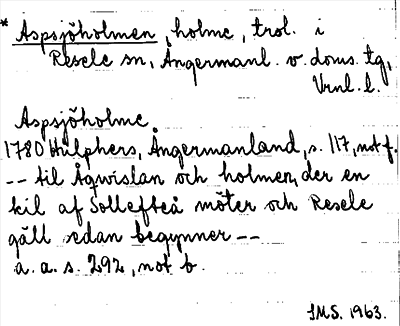 * Aspsjöholmen, holme, trol. i
Resele sn, Ångermanl. v. doms. tg,
Vrnl. l.
Aspsjöholme
1780 Hülphers, Ångermanland, s. 117, not f.
-- til Ågwislan och holmen, der en
kil af Sollefteå möter och Resele
gäll sedan begynner --
a. a. s. 292, not b.
IMS. 1963.